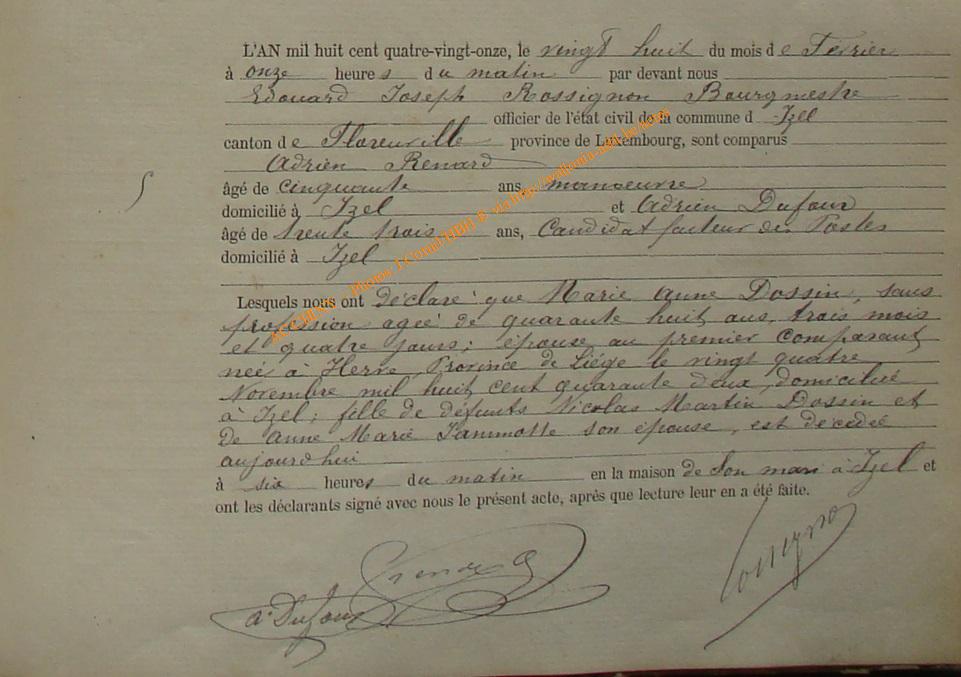 L'AN mil huit cent quatre-vingt-onze, le vingt huit du mois de Fevrier
à onze heures du matin par devant nous
Edouard Joseph Rossignon Bourgmestre
officier de l'état civil de la commune d Izel
canton de Florenville province de Luxembourg, sont comparus
Adrien Renard
âgé de cinquante ans manoeuvre
domicilié à Izel et Adrien Dufour
âgé de trente trois ans, Candidat facteur des Postes
domicilié à Izel
Lesquels nous ont déclaré que Marie Anne Dossin, sans
profession agée de quarante huit ans, trois mois
et quatre jours; épouse au premier comparant
née à Herve, Province de Liége le vingt quatre
Novembre mil huit cent quarante deux, domiciliée
à Izel; fille de défunts Nicolas Martin Dossin et
de Anne Marie son épouse, est décédée
aujourdhui
à six heures du matin en la maison de son mari à Izel et
ont les déclarants signé avec nous le présent acte, après que lecture leur en a été faite.
A. Dufour